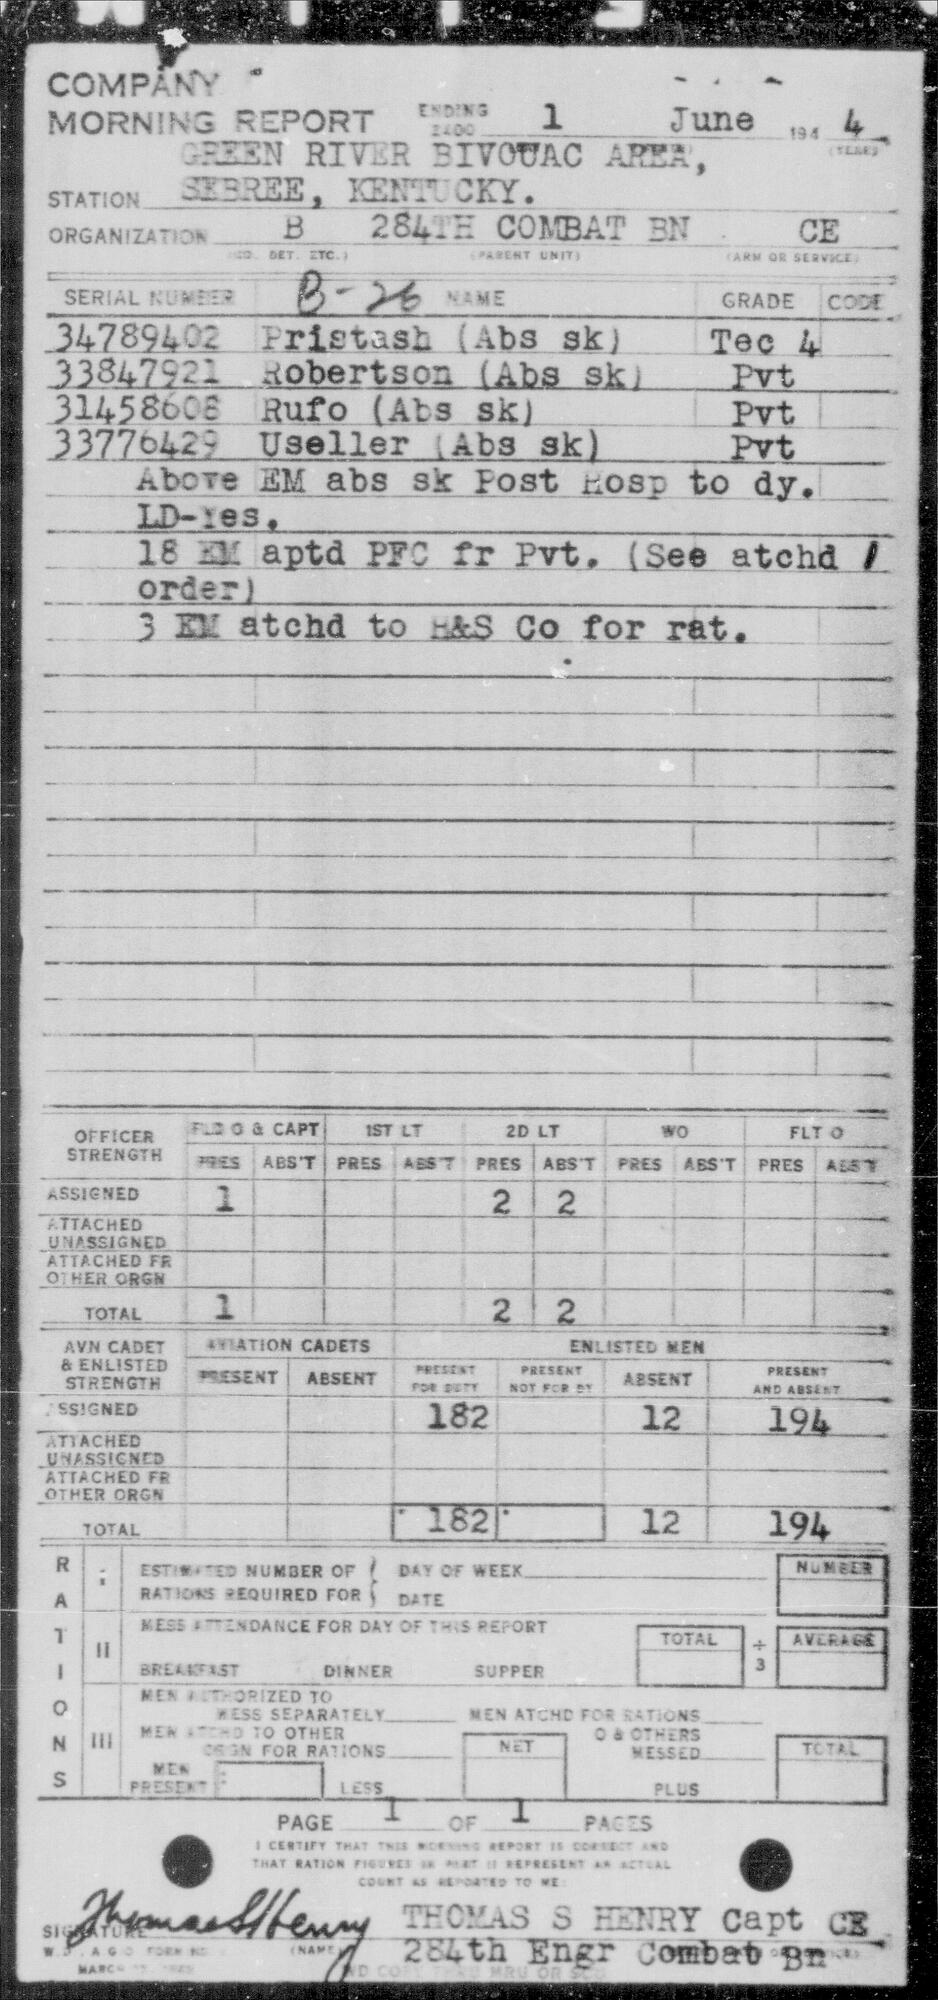 COMPANY
MORNING REPORT ENDING 2400 1 June 194 4
(YEAR)
GREEN RIVER BIVOUAC AREA,
STATION SEBREE, KENTUCKY.
ORGANIZATION B 284TH COMBAT BN CE
(CO. DET. ETC.) (PARENT UNIT) (ARM OR SERVICE)
SERIAL NUMBER B-26 NAME GRADE CODE
34789402 Pristash (Abs sk) Tec 4
33847921 Robertson (Abs sk) Pvt
31458608 Rufo (Abs sk) Pvt
33776429 Useller (Abs sk) Pvt
Above EM abs sk Post Hosp to dy.
LD-Yes.
18 EM aptd PFC fr Pvt. (See atchd 1
order)
3 EM atchd to H&S Co for rat.
OFFICER STRENGTH FLD O & CAPT 1ST LT 2D LT WO FLT O
PRES ABS'T PRES ABS'T PRES ABS'T PRES ABS'T PRES ABS'T
ASSIGNED 1 2 2
ATTACHED UNASSIGNED
ATTACHED FR OTHER ORGN
TOTAL 1 2 2
AVN CADET & ENLISTED STRENGTH AVIATION CADETS ENLISTED MEN
PRESENT ABSENT PRESENT FOR DUTY PRESENT NOT FOR DY ABSENT PRESENT AND ABSENT
ASSIGNED 182 12 194
ATTACHED UNASSIGNED
ATTACHED FR OTHER ORGN
TOTAL 182 12 194
RATIONS
I ESTIMATED NUMBER OF DAY OF WEEK NUMBER
RATIONS REQUIRED FOR DATE
II MESS ATTENDANCE FOR DAY OF THIS REPORT TOTAL ÷ 3 AVERAGE
BREAKFAST DINNER SUPPER
III MEN AUTHORIZED TO
MESS SEPARATELY MEN ATCHD FOR RATIONS
MEN ATCHD TO OTHER O & OTHERS
ORGN FOR RATIONS NET MESSED TOTAL
MEN PRESENT LESS PLUS
PAGE 1 OF 1 PAGES
I CERTIFY THAT THIS MORNING REPORT IS CORRECT AND
THAT RATION FIGURES IN PART II REPRESENT AN ACTUAL
COUNT AS REPORTED TO ME:
SIGNATURE Thomas S Henry THOMAS S HENRY Capt CE
W.D., A G O FORM NO (NAME) 284th Engr Combat Bn
MARCH
WD COPY THRU MRU OR SCU